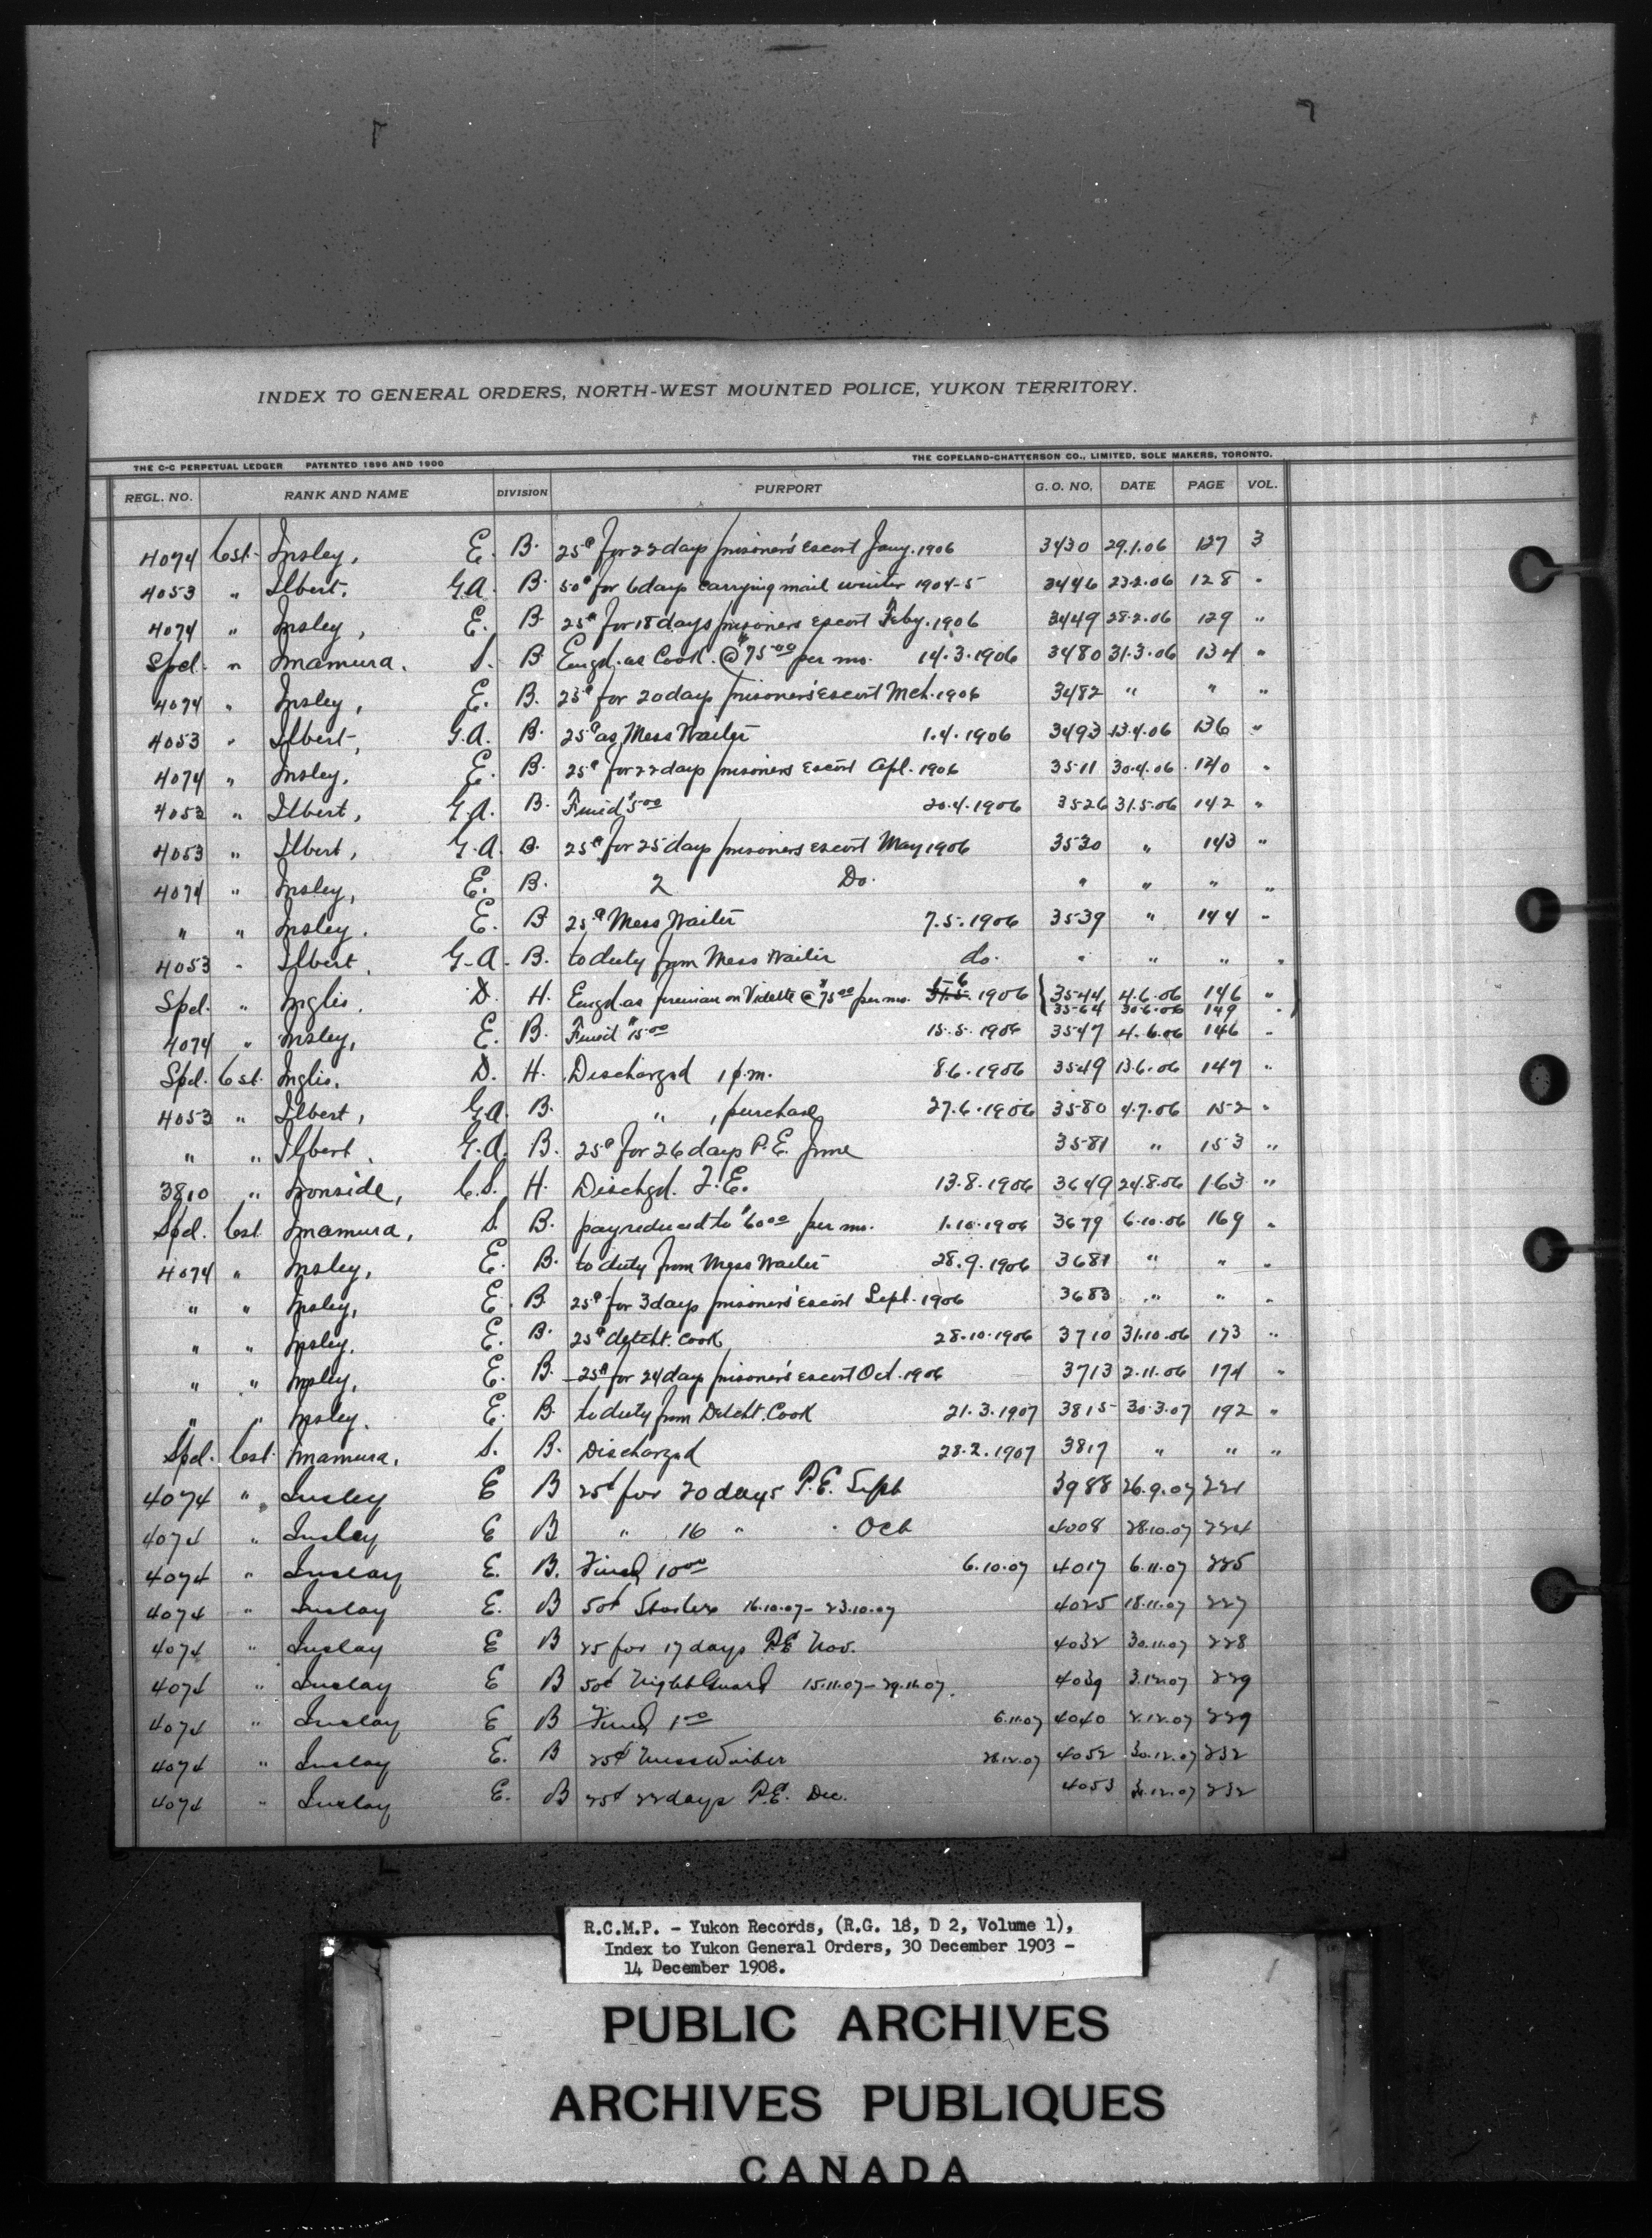 INDEX TO GENERAL ORDERS, NORTH-WEST MOUNTED POLICE, YUKON TERRITORY.
THE C-C PERPETUAL LEDGER PATENTED 1896 AND 1900 THE COPELAND-CHATTERSON CO., LIMITED, SOLE MAKERS, TORONTO.
REGL. NO. RANK AND NAME DIVISION PURPORT G. O. NO. DATE PAGE VOL.
4074 Cst. Insley, E. B. 25¢ for 22 days prisoner's escort Jany. 1906 3430 29.1.06 127 3
4053 " Ilbert, G.A. B. 50¢ for 6 days carrying mail winter 1904-5 3446 23.2.06 128 "
4074 " Insley, E. B. 25¢ for 18 days prisoners escort Feby. 1906 3449 28.2.06 129 "
Spcl. " Imamura, S. B. Engd. as Cook. @ $75.00 per mo. 14.3.1906 3480 31.3.06 134 "
4074 " Insley, E. B. 25¢ for 20 days prisoners' escort Mch. 1906 3482 " " "
4053 " Ilbert, G.A. B. 25¢ as Mess Waiter 1.4.1906 3493 13.4.06 136 "
4074 " Insley, E. B. 25¢ for 22 days prisoners escort Apl. 1906 3511 30.4.06 140 "
4053 " Ilbert, G.A. B. Fined $5.00 20.4.1906 3526 31.5.06 142 "
4053 " Ilbert, G.A. B. 25¢ for 25 days prisoners escort May 1906 3530 " 143 "
4074 " Insley, E. B. 2 Do. " " " "
" " Insley. E. B 25¢ Mess Waiter 7.5.1906 3539 " 144 "
4053 " Ilbert, G.A. B. to duty from Mess Waiter do. " " " "
Spcl. " Inglis. D. H. Engd. as fireman on Vidette @ $75.00 per mo. 1.6.1906 { 3544 4.6.06 146 " }
3564 30.6.06 149
4074 " Insley, E. B. Fined $15.00 15.5.1906 3547 4.6.06 146 "
Spcl. Cst. Inglis. D. H. Discharged 1 p.m. 8.6.1906 3549 13.6.06 147 "
4053 " Ilbert, G.A. B. " , purchase 27.6.1906 3580 4.7.06 152 "
" " Ilbert, G.A. B. 25¢ for 26 days P.E. June 3581 " 153 "
3810 " Ironside, C.S. H. Dischgd. T.E. 13.8.1906 3649 24.8.06 163 "
Spcl. Cst. Imamura, S. B. pay reduced to $60.00 per mo. 1.10.1906 3679 6.10.06 169 "
4074 " Insley, E. B. to duty from Mess Waiter 28.9.1906 3681 " " "
" " Insley, E. B. 25¢ for 3 days prisoners' escort Sept. 1906 3683 " " "
" " Insley. E. B. 25¢ detcht. Cook 28.10.1906 3710 31.10.06 173 "
" " Insley, E. B. 25¢ for 24 days prisoner's escort Oct. 1906 3713 2.11.06 174 "
" " Insley. E. B. to duty from Detcht. Cook 21.3.1907 3815 30.3.07 192 "
Spcl. Cst. Imamura, S. B. Discharged 28.2.1907 3817 " " "
4074 " Insley E B 25¢ for 20 days P.E. Sept 3988 26.9.07 221
4074 " Insley E B " 16 " " Oct 4008 28.10.07 224
4074 " Inslay E. B. Fined 10.00 6.10.07 4017 6.11.07 225
4074 " Inslay E. B 50¢ 16.10.07 - 23.10.07 4025 18.11.07 227
4074 " Inslay E B 25 for 17 days P.E Nov. 4032 30.11.07 228
4074 " Inslay E B 50¢ Night Guard 15.11.07 - 29.11.07. 4039 3.12.07 229
4074 " Inslay E B Fined 1.00 6.11.07 4040 2.12.07 229
4074 " Inslay E. B 25¢ Mess Waiter 28.12.07 4052 30.12.07 232
4074 " Inslay E. B 25¢ 22 days P.E. Dec. 4053 31.12.07 232
R.C.M.P. - Yukon Records, (R.G. 18, D 2, Volume 1),
Index to Yukon General Orders, 30 December 1903 -
14 December 1908.
PUBLIC ARCHIVES
ARCHIVES PUBLIQUES
CANADA